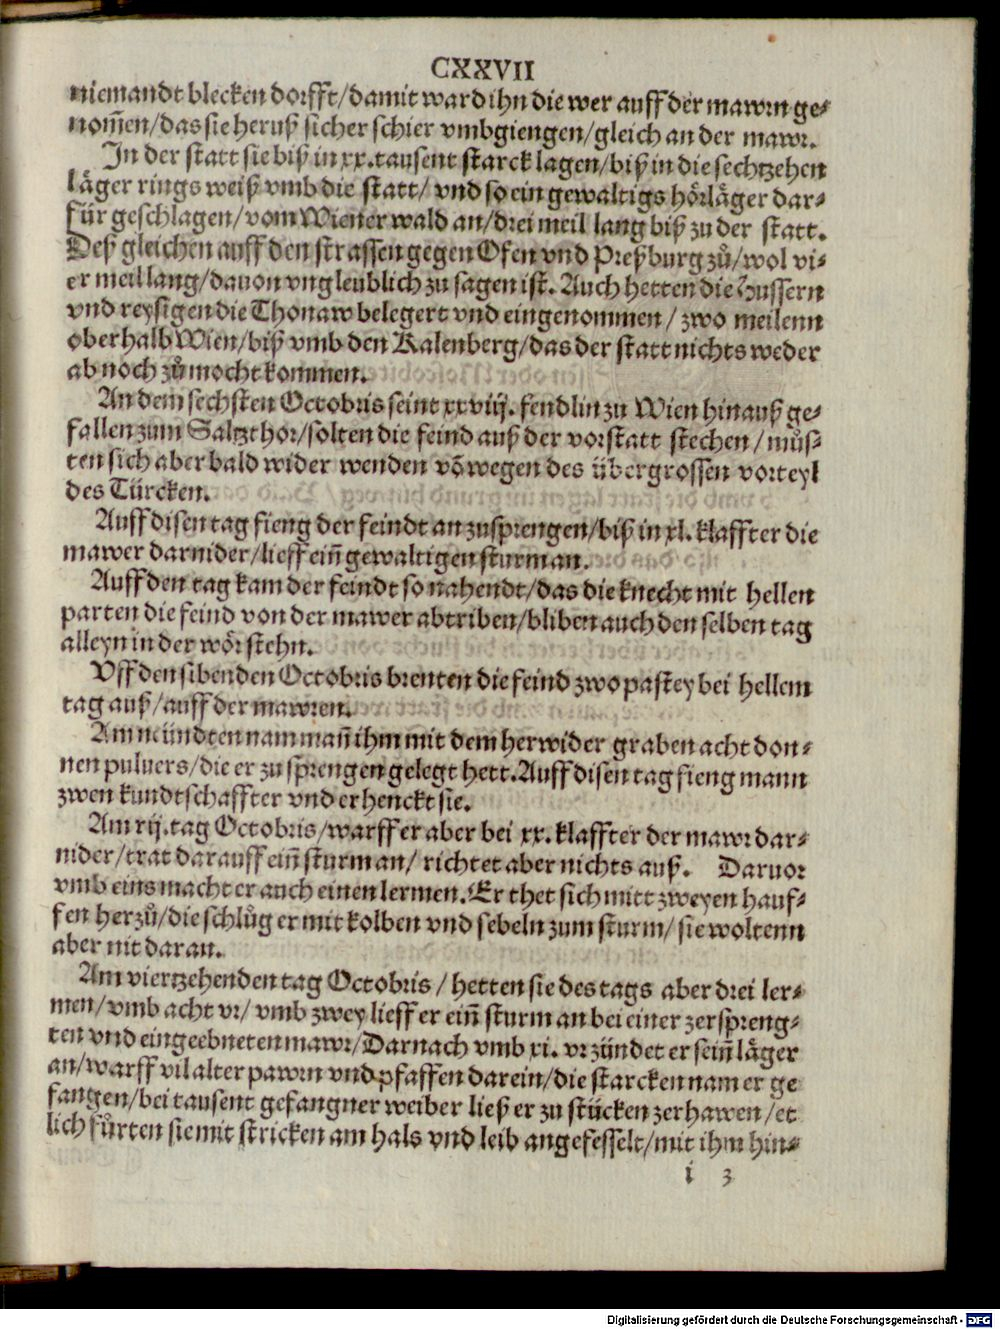 CXXVII
niemandt blecken dorfft/damit ward ihn die wer auff der mawrn ge-
nom̃en/das sie heruß sicher schier vmbgiengen/gleich an der mawr.
In der statt sie biß in xx.tausent starck lagen/biß in die sechtzehen
läger rings weiß vmb die statt/ vnd so ein gewaltigs hörläger dar-
für geschlagen/vom Wiener wald an/drei meil lang biß zu der statt.
Deß gleichen auff den strassen gegen Ofen vnd Preßburg zů/wol vi-
er meil lang/dauon vngleublich zu sagen ist. Auch hetten die Hussern
vnd reysigen die Thonaw belegert vnd eingenommen/ zwo meilenn
oberhalb Wien/biß vmb den Kalenberg/das der statt nichts weder
ab noch zů mocht kommen.
An dem sechsten Octobris seint xxviij. fendlin zu Wien hinauß ge-
fallen zum Saltzthor/solten die feind auß der vorstatt stechen/můs-
ten sich aber bald wider wenden võ wegen des übergrossen vorteyl
des Türcken.
Auff disen tag fieng der feindt an zusprengen/biß in xl.klaffter die
mawer darnider/lieff eiñ gewaltigen sturm an.
Auff den tag kam der feindt so nahendt/das die knecht mit hellen
parten die feind von der mawer abtriben/bliben auch den selben tag
alleyn in der wör stehn.
Vff den sibenden Octobris brenten die feind zwo pastey bei hellem
tag auß/auff der mawren.
Am neündten nam mañ ihm mit dem herwider graben acht don-
nen puluers/die er zu sprengen gelegt hett. Auff disen tag fieng mann
zwen kundtschaffter vnd erhenckt sie.
Am xij.tag Octobris/warff er aber bei xx.klaffter der mawr dar-
nider/trat darauff eiñ sturm an/ richtet aber nichts auß. Daruor
vmb eins macht er auch einen lermen. Er thet sich mitt zweyen hauf-
fen herzů/die schlůg er mit kolben vnd sebeln zum sturm/ sie woltenn
aber nit daran.
Am viertzehenden tag Octobris/ hetten sie des tags aber drei ler-
men/vmb acht vr/ vmb zwey lieff er eiñ sturm an bei einer zerspreng-
ten vnd eingeebneten mawr/Darnach vmb xi. vr zündet er seiñ läger
an/warff vil alter pawrn vnd pfaffen darein/die starcken nam er ge
fangen/bei tausent gefangner weiber ließ er zu stücken zerhawen/et
lich fůrten sie mit stricken am hals vnd leib angefesselt/mit ihm hin-
i 3
Digitalisierung gefördert durch die Deutsche Forschungsgemeinschaft - DFG